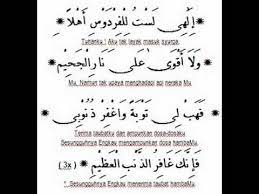 إِلٰهِي لَسْتُ لِلْفِرْدَوْسِ أَهْلًا
Tuhanku ! Aku tak layak masuk syurga.
وَلَا أَقْوَى عَلَى نَارِ الْجَحِيْمِ
Mu, Namun tak upaya menghadapi api neraka Mu
فَهَبْ لِي تَوْبَةً وَاغْفِرْ ذُنُوْبِي
Terima taubatku dan ampunkan dosa-dosaku
Sesungguhnya Engkau mengampunkan dosa hambaMu.
فَإِنَّكَ غَافِرُ الذَّنْبِ الْعَظِيْمِ (3x)
" Sesungguhnya Engkau menerima taubat hambaMu